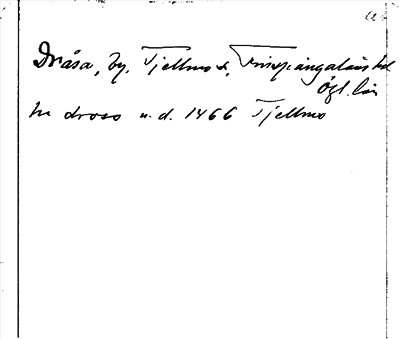 Dråsa, by, Tjellmo s., Finspångaläns hd
Ögl. län
in droso u.d. 1466 Tjellmo